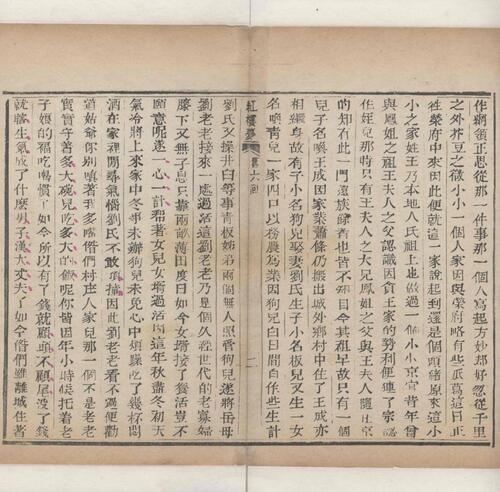 作綱領正思從那一件事那一個人寫起方妙却好忽從千里
之外芥豆之微小小一個人家因與榮府畧有些瓜葛這日正
往榮府中來因此便就這一家說起到還是個頭緒原來這小
小之家姓王乃本地人氏祖上也做過一個小小京官昔年曾
與鳳姐之祖王夫人之父認識因貪王家的勢利便連了宗認
作姪兒那時只有王夫人之大兄鳳姐之父與王夫人隨在京
的知有此一門遠族餘者也皆不知目今其祖早故只有一個
兒子名喚王成因家業蕭條仍搬出城外鄉村中住了王成亦
相繼身故有子小名狗兒娶妻劉氏生子小名板兒又生一女
名喚青兒一家四口以務農爲業因狗兒白日間自作些生計
紅樓夢 第六回 二
劉氏又操井臼等事青板姊弟兩個無人照管狗兒遂將岳母
劉老老接來一處過活這劉老老乃是個久經世代的老寡婦
膝下又無子息只靠兩畝薄田度日如今女壻接了養活豈不
願意呢遂一心一計幫着女兒女壻過活因這年秋盡冬初天
氣冷將上來家中冬事未辦狗兒未免心中煩躁吃了幾杯悶
酒在家裡閒尋氣惱劉氏不敢頂撞因此劉老老看不過便勸
道姑爺你別嗔着我多嘴偺們村庄人家兒那一個不是老老
實實守着多大碗兒吃多大的飯呢你皆因年小時候托着老
子娘的福吃喝慣了如今所以有了錢就顧頭不顧尾沒了錢
就瞎生氣成了什麼男子漢大丈夫了如今偺們雖離城住着